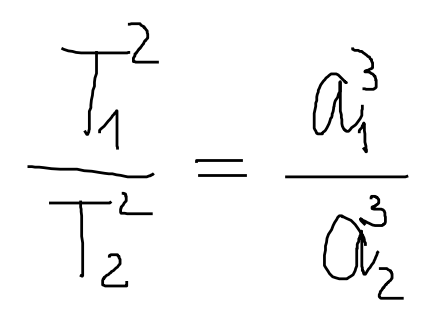 T₁² / T₂² = a₁³ / a₂³